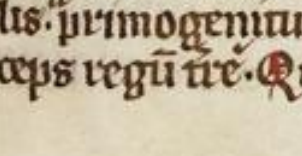 lis. primogenitu
ceps regū tr̄e. Q